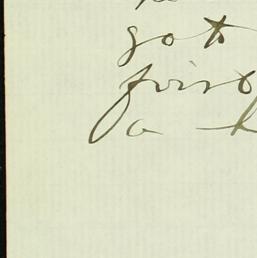 got
first
a